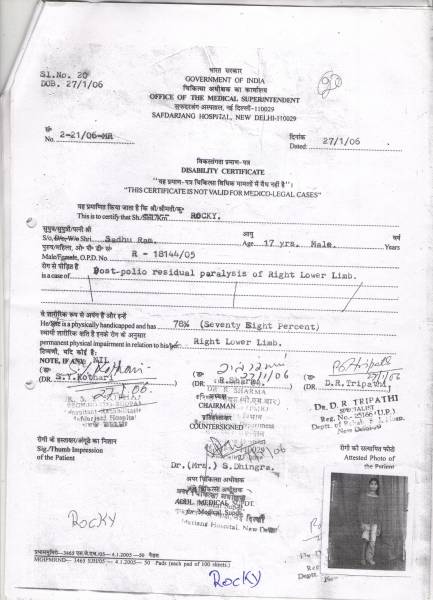 Sl.No. 20
DOB. 27/1/06
भारत सरकार
GOVERNMENT OF INDIA
चिकित्सा अधीक्षक का कार्यालय
OFFICE OF THE MEDICAL SUPERINTENDENT
सफदरजंग अस्पताल, नई दिल्ली-110029
SAFDARJANG HOSPITAL, NEW DELHI-110029
सं०
No. 2-21/06-MR
दिनांक
Dated: 27/1/06
विकलांगता प्रमाण-पत्र
DISABILITY CERTIFICATE
"यह प्रमाण-पत्र चिकित्सा विधिक मामलों में वैध नहीं है"।
"THIS CERTIFICATE IS NOT VALID FOR MEDICO-LEGAL CASES"
यह प्रमाणित किया जाता है कि श्री/श्रीमती/कु०
This is to certify that Sh./Smt./Km. ROCKY.
सुपुत्र/सुपुत्री/पत्नी श्री आयु वर्ष
S/o, D/o, W/o Shri Sadhu Ram. Age 17 yrs. Male. Years
पुरुष/महिला, ओ० पी० डी० सं०
Male/Female, O.P.D. No. R - 18144/05
रोग से पीड़ित है
is a case of Post-polio residual paralysis of Right Lower Limb.
से शारीरिक रूप से अपंग है और इन्हें
He/She is a physically handicapped and has 78% (Seventy Eight Percent)
स्थायी शारीरिक क्षति है इनके रोग के अनुसार
permanent physical impairment in relation to his/her Right Lower Limb.
टिप्पणी, यदि कोई है:
NOTE, IF ANY: NIL
(डा० (डा० (डा०
S.T.Kothari (DR. R.Sharma (DR. D.R.Tripathi)
27/1/06
CHAIRMAN
COUNTERSIGNED
Dr. D. R. TRIPATHI
SPECIALIST
Reg. No. 25166 (U.P.)
New Delhi-29
रोगी के हस्ताक्षर/अंगूठे का निशान
Sig./Thumb Impression
of the Patient
Dr.(Mrs.) S.Dhingra.
अपर चिकित्सा अधीक्षक
ADDL. MEDICAL SUPDT.
रोगी की सत्यापित फोटो
Attested Photo of
the Patient
ROCKY
ROCKY